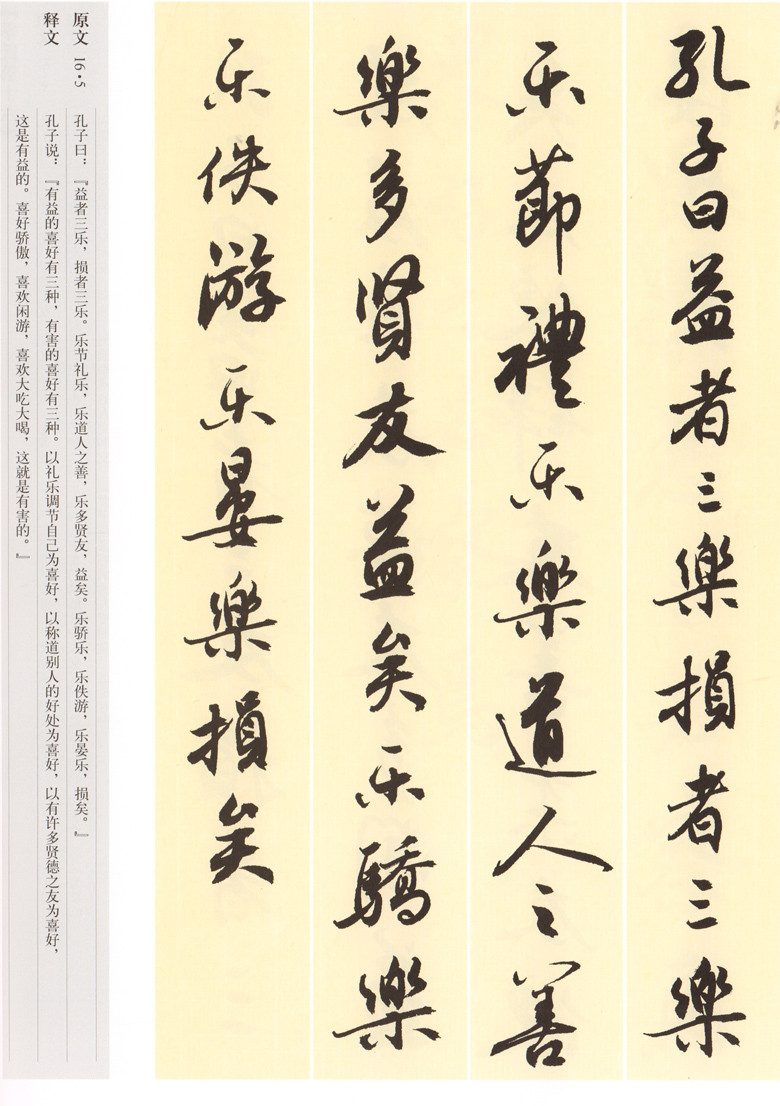 孔子曰益者三樂損者三樂
乐節禮乐樂道人之善
樂多賢友益矣乐驕樂
乐佚游乐晏樂損矣
原文 16·5
孔子曰：『益者三乐，损者三乐。乐节礼乐，乐道人之善，乐多贤友，益矣。乐骄乐，乐佚游，乐晏乐，损矣。』
释文
孔子说：『有益的喜好有三种，有害的喜好有三种。以礼乐调节自己为喜好，以称道别人的好处为喜好，以有许多贤德之友为喜好，
这是有益的。喜好骄傲，喜欢闲游，喜欢大吃大喝，这就是有害的。』